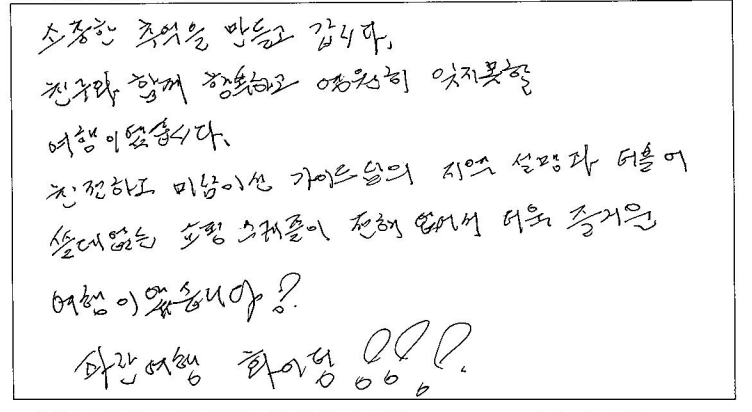 소중한 추억을 만들고 갑니다.
친구와 함께 행복하고 영원히 잊지못할
여행이였습니다.
친절하고 미남이신 가이드님의 지역 설명과 더불어
쓸데없는 쇼핑 스케줄이 전혀 없어서 더욱 즐거운
여행이였습니다!
파란여행 화이팅!!!